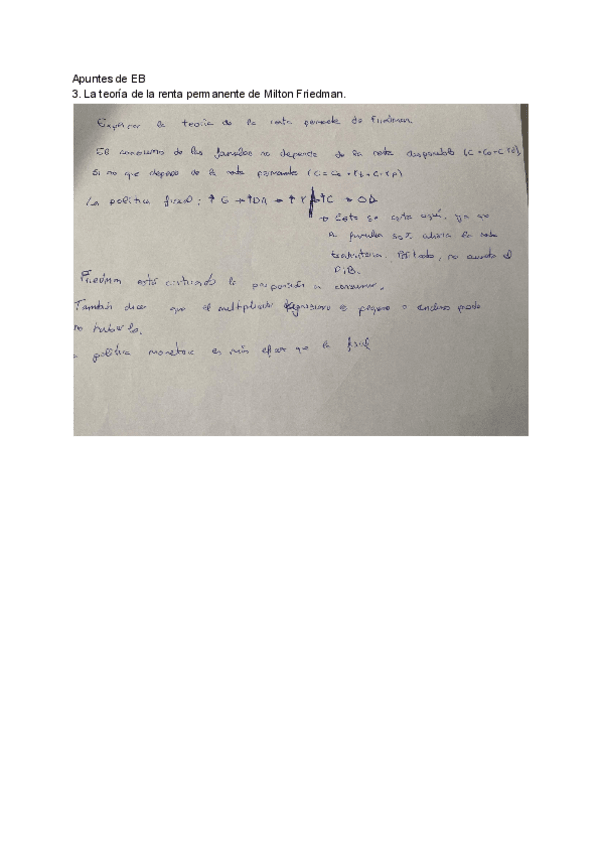 Apuntes de EB
3. La teoría de la renta permanente de Milton Friedman.
Explicar la teoría de la renta permante de Friedman.
El consumo de las familias no depende de la renta disponible (C = Co + C Yd)
Si no que depende de la renta permante
La política fiscal: ↑ G → ↑DA → ↑ Y ↑C → DA
→ Esto se esta aquí, ya que
la familia la renta
transitoria. no aumenta el
PIB.
Friedman está la proposición a consumir.
También dice que el multiplicador keynesiano es pequeño o incluso puede
no haberlo.
política monetaria es más eficaz que la fiscal